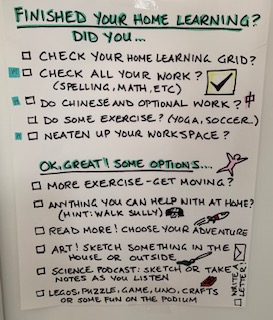 FINISHED YOUR HOME LEARNING?
DID YOU...
CHECK YOUR HOME LEARNING GRID?
CHECK ALL YOUR WORK?
(SPELLING, MATH, ETC)
DO CHINESE AND OPTIONAL WORK? 中
DO SOME EXERCISE? (YOGA, SOCCER..)
NEATEN UP YOUR WORKSPACE?
OK, GREAT! SOME OPTIONS....
MORE EXERCISE - GET MOVING?
ANYTHING YOU CAN HELP WITH AT HOME?
(HINT: WALK SULLY)
READ MORE! CHOOSE YOUR ADVENTURE
ART! SKETCH SOMETHING IN THE
HOUSE OR OUTSIDE
SCIENCE PODCAST: SKETCH OR TAKE
NOTES AS YOU LISTEN
LEGOS, PUZZLE, GAME, UNO, CRAFTS
OR SOME FUN ON THE PODIUM
WRITE A
LETTER!